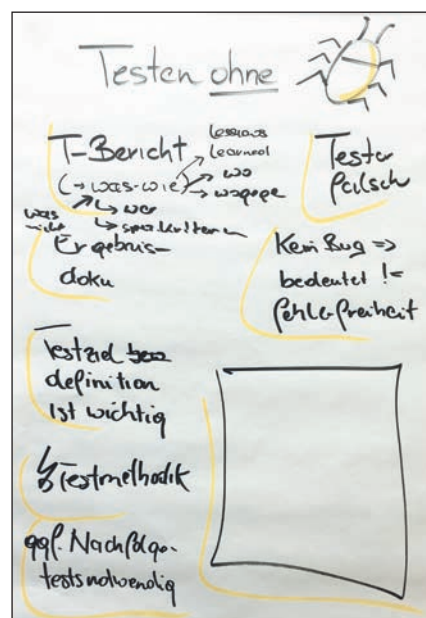 Testen ohne
T-Bericht
(→ was-wie)
lessons
learned
→ wo
→ wogege
→ wer
was
nicht
Ergebnis-
doku
Tester
falsch
Kein Bug =>
bedeutet !=
fehlerfreiheit
Testziel
definition
ist wichtig
Testmethodik
ggf. Nachfolge-
tests notwendig